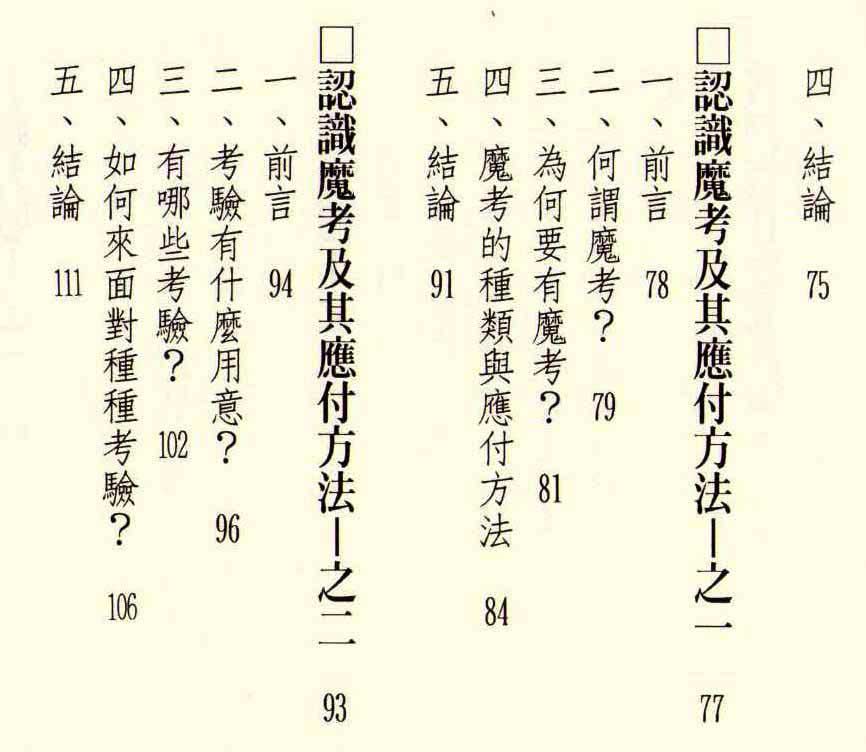 四、結論 75
□認識魔考及其應付方法—之一 77
一、前言 78
二、何謂魔考？ 79
三、為何要有魔考？ 81
四、魔考的種類與應付方法 84
五、結論 91
□認識魔考及其應付方法—之二 93
一、前言 94
二、考驗有什麼用意？ 96
三、有哪些考驗？ 102
四、如何來面對種種考驗？ 106
五、結論 111